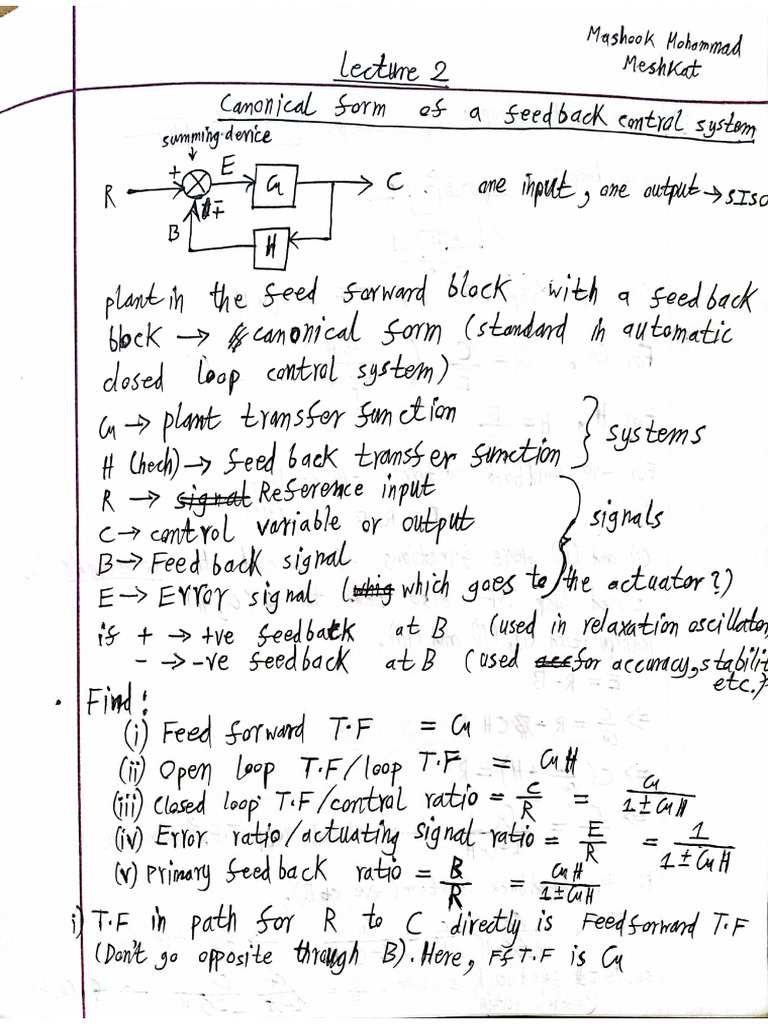 Mashook Mohammad
Meshkat
Lecture 2
Canonical form of a feedback control system
summing device
+
R
E
G
C
one input, one output → SISO
∓
B
H
plant in the feed forward block with a feedback
block → canonical form (standard in automatic
closed loop control system)
G → plant transfer function
H (hech) → feed back transfer function
} systems
R → signal Reference input
C → control variable or output
} signals
B → Feed back signal
E → Error signal (which goes to the actuator?)
if + → +ve feedback at B (used in relaxation oscillator
- → -ve feedback at B (used for accuracy, stabilit
etc.)
. Find:
(i) Feed forward T.F = G
(ii) Open loop T.F/loop T.F = GH
(iii) closed loop T.F/control ratio = C/R = G/(1±GH)
(iv) Error ratio/actuating signal ratio = E/R = 1/(1±GH)
(v) primary feedback ratio = B/R = GH/(1±GH)
i) T.F in path for R to C directly is Feedforward T.F
(Don't go opposite through B). Here, Ff T.F is G